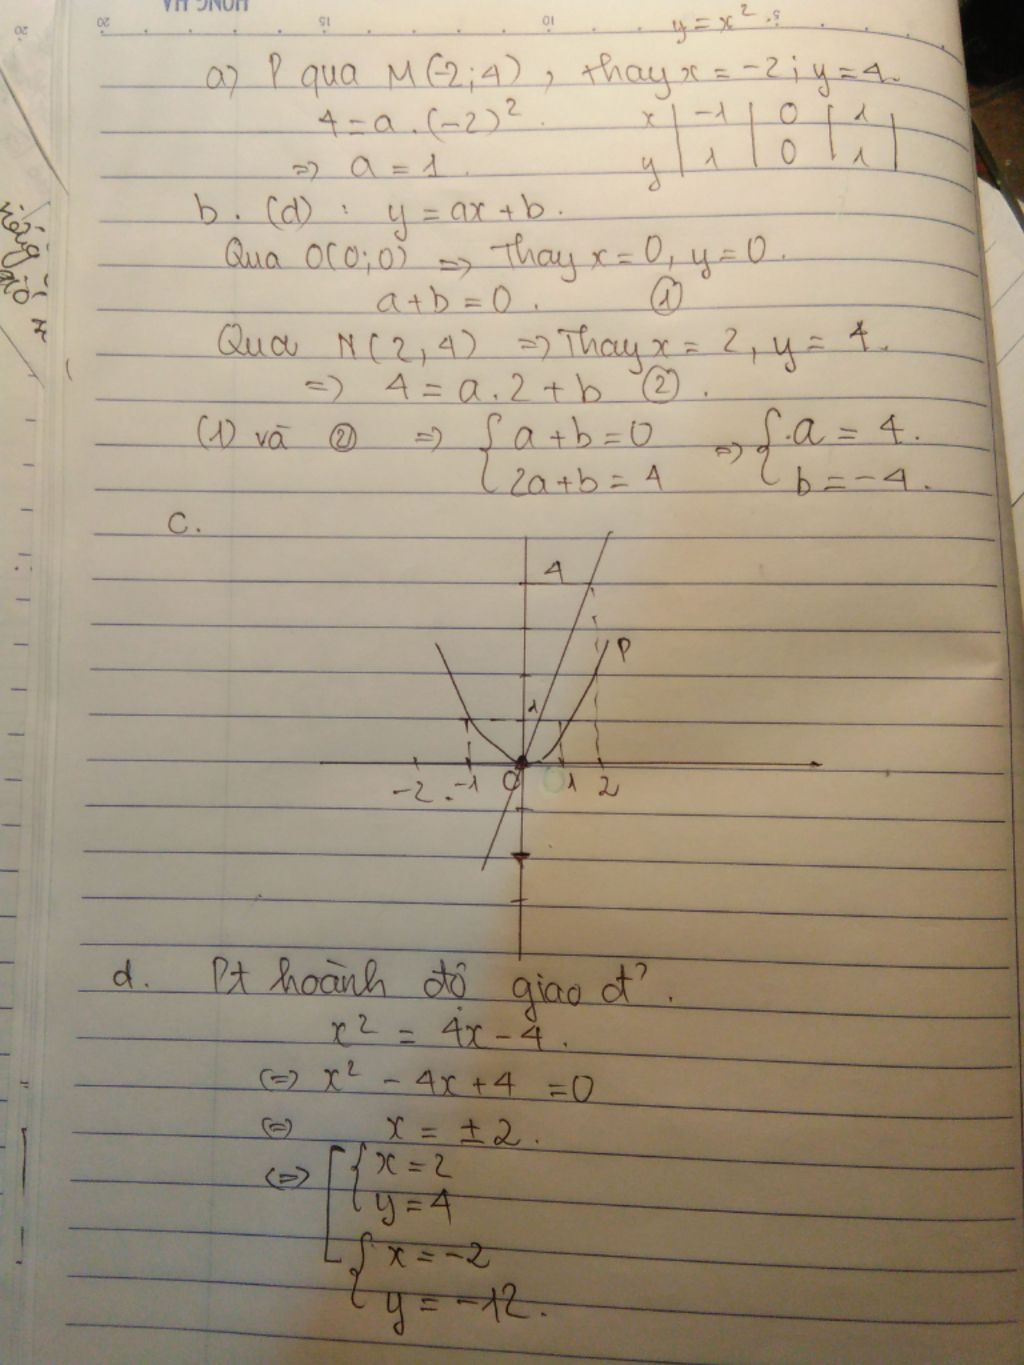 HỒNG HÀ
20 15 10 5
y = x²
a) P qua M(-2;4), thay x = -2; y = 4.
4 = a.(-2)².
x | -1 | 0 | 1 |
=> a = 1.
y | 1 | 0 | 1 |
b. (d) : y = ax + b.
Qua O(0;0) => Thay x = 0, y = 0.
a + b = 0. ①
Qua N(2,4) => Thay x = 2, y = 4.
=> 4 = a.2 + b ②.
(1) và ② => { a + b = 0 => { a = 4.
2a + b = 4 b = -4.
c.
4
P
1
-2 -1 O 1 2
d. Pt hoành độ giao đ'.
x² = 4x - 4.
(=) x² - 4x + 4 = 0
(=) x = ± 2.
(=) [ { x = 2
y = 4
{ x = -2
y = -12.